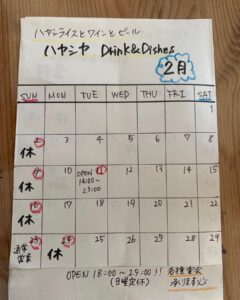 ハヤシライスとワインとビール
ハヤシヤ Drink&Dishes
2月
SUN MON TUE WED THU FRI SAT
1
2 3 4 5 6 7 8
休
9 10 11 12 13 14 15
休 OPEN
14:00〜
23:00
16 17 18 19 20 21 22
休
23 24 25 26 27 28 29
通常
営業 休
OPEN 18:00〜25:00!!
(日曜定休)
各種宴会
承ります